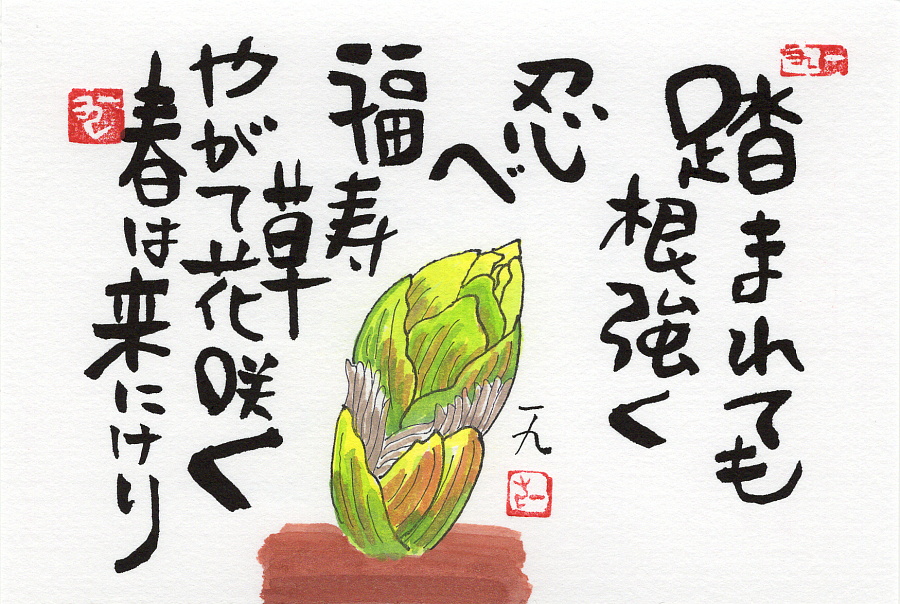 踏まれても
根強く
忍べ
福寿
草
やがて花咲く
春は来にけり
一九